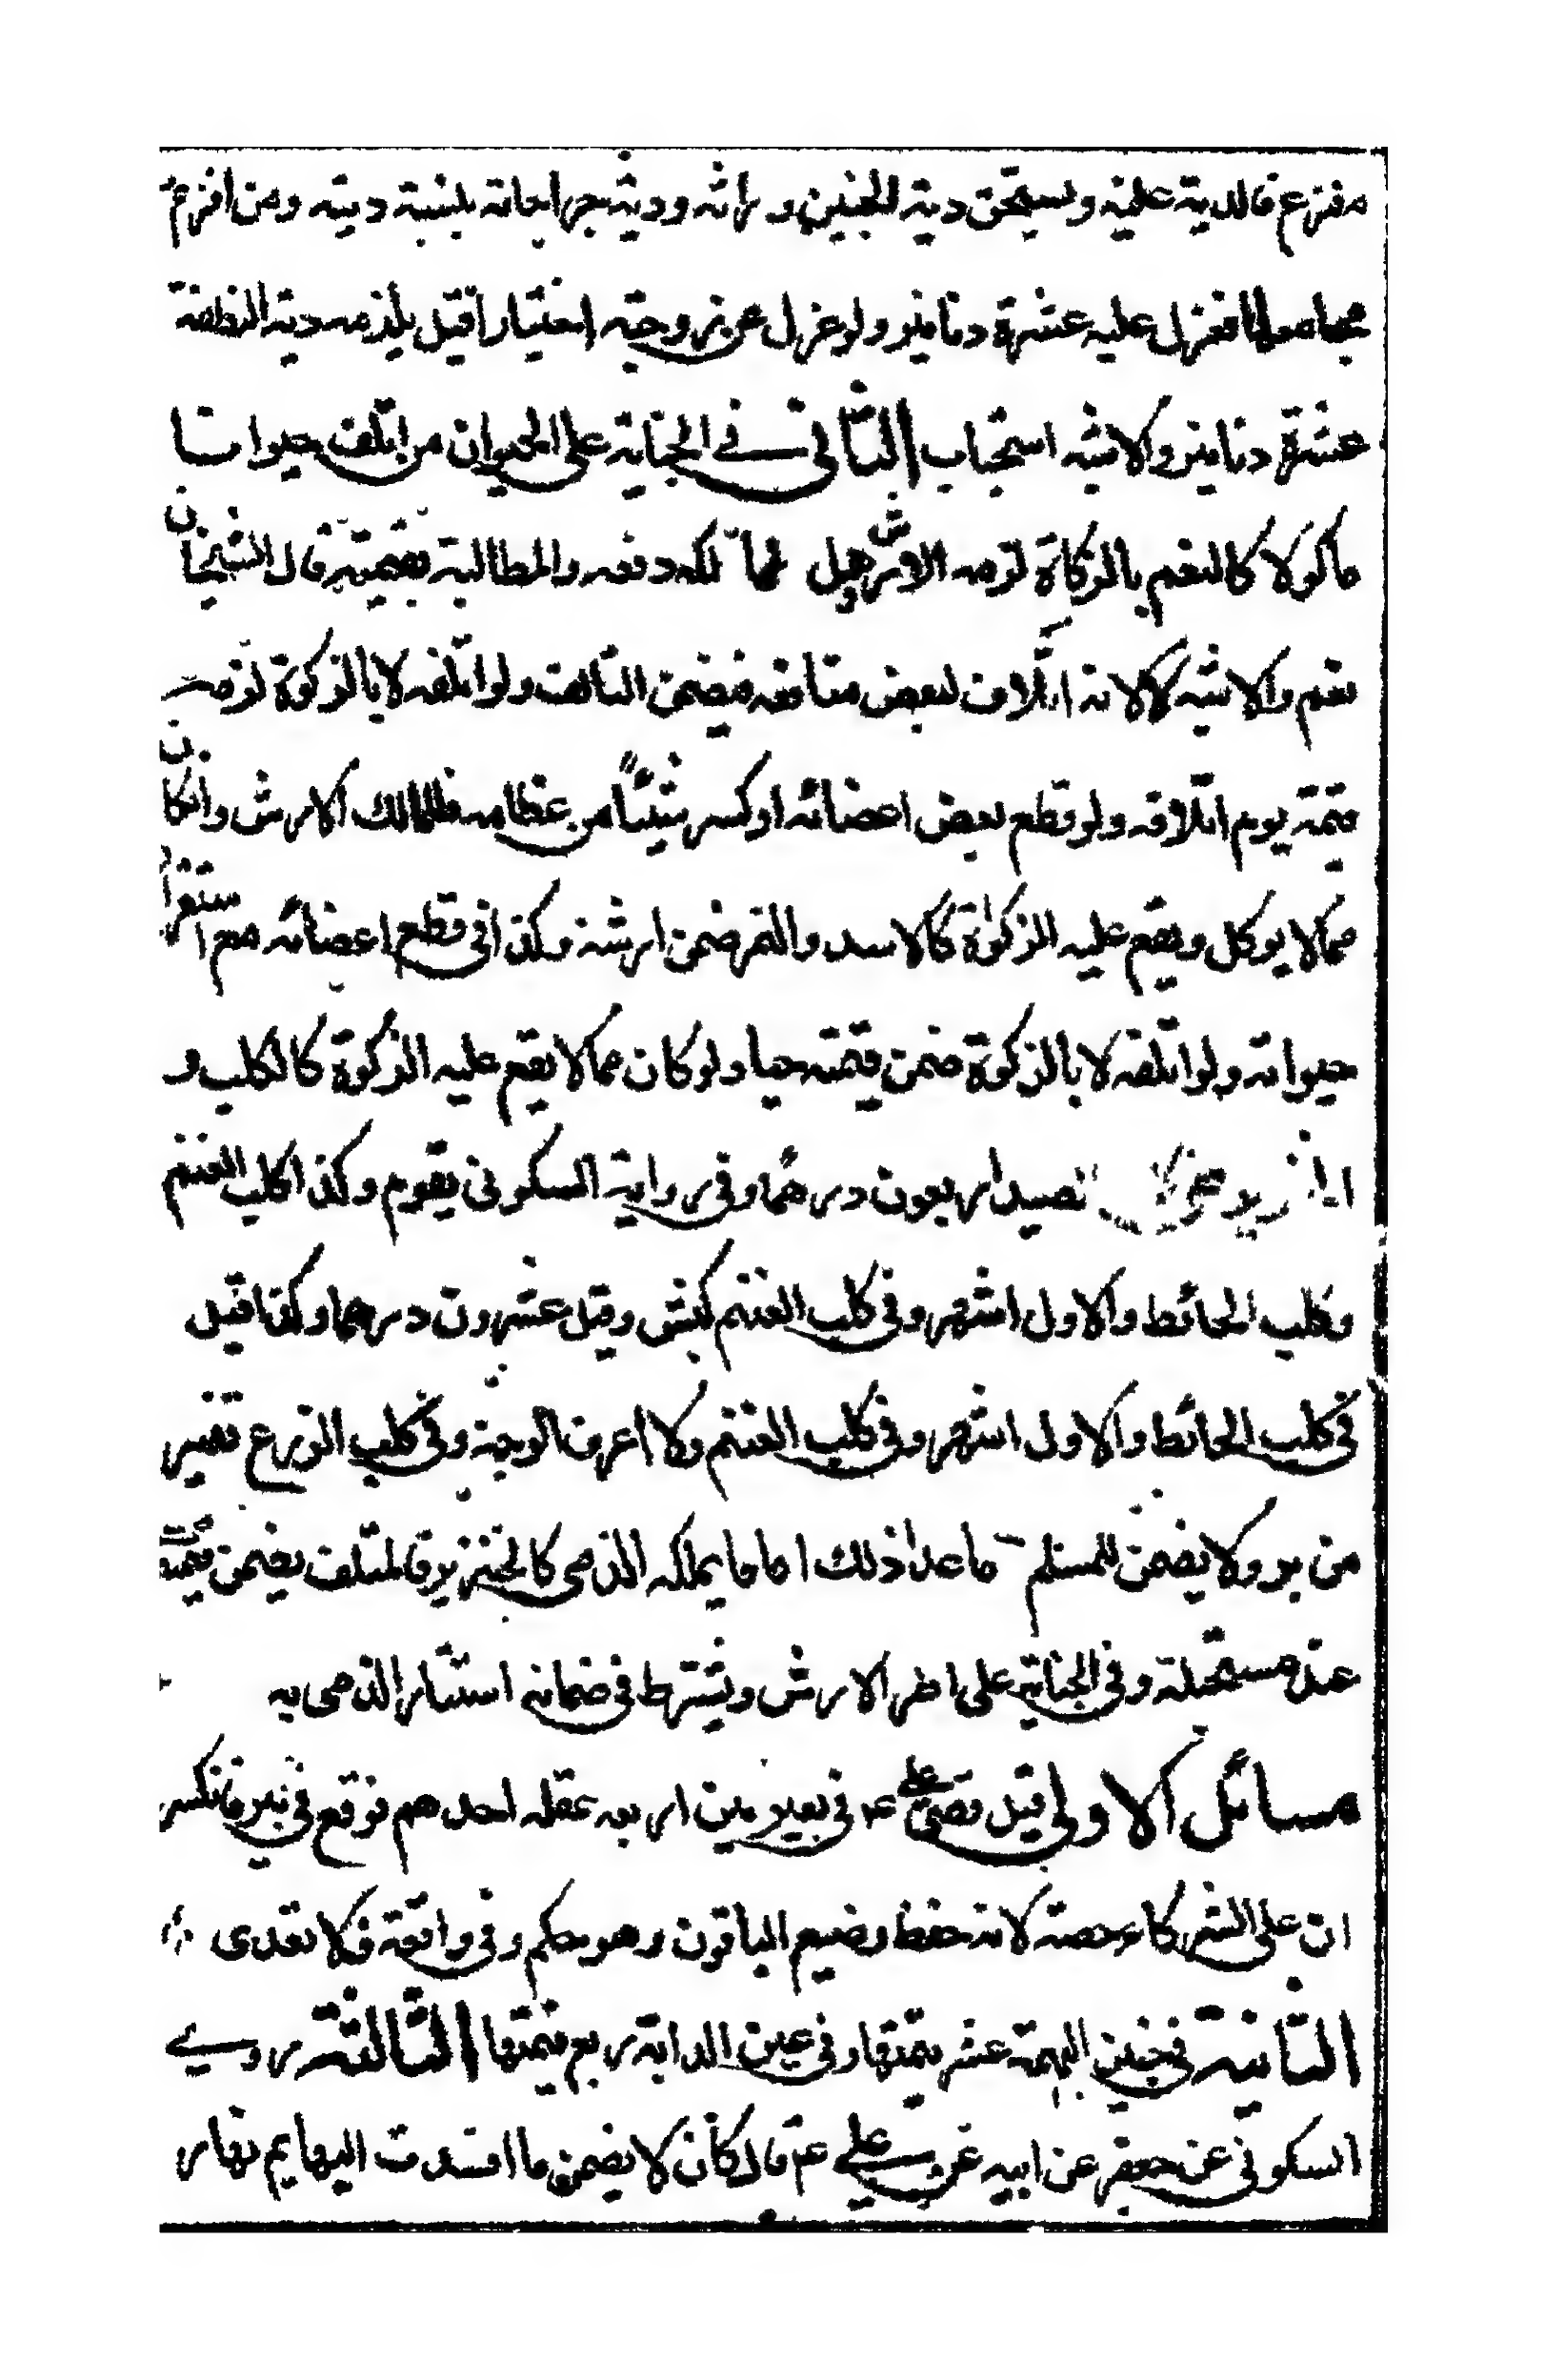 مفزع فالدية عليه ويستحق دية الجنين وراثه ودية جراحاته بنسبة ديته ومن افزع
مجامعا فعزل عليه عشرة دنانير ولو عزل عن زوجته اختيارا قيل يلزمه دية النطفة
عشرة دنانير والاشبه استحباب الثاني في الجناية على الحيوان من اتلف حيوانا
ماكولا كالنعم بالزكاة لزمه الارش وهل لمالكه دفعه والمطالبة بقيمته قال الشيخان
نعم والاشبه لا لانه اتلاف لبعض منافعه فيضمن التالف ولو اتلفه لا بالزكوة لزمه
قيمته يوم اتلافه ولو قطع بعض اعضائه او كسر شيئا من عظامه فللمالك الارش وان كان
مما لا يوكل ويقع عليه الزكوة كالاسد والنمر ضمن ارشه وكذا في قطع اعضائه مع استقرار
حيواته ولو اتلفه لا بالزكوة ضمن قيمته حيا ولو كان مما لا يقع عليه الزكوة كالكلب و
الصيد اربعون درهما وفي رواية السكوني يقوم وكذا كلب الغنم
وكلب الحائط والاول اشهر وفي كلب الغنم كبش وقيل عشرون درهما وكذا قيل
في كلب الحائط والاول اشهر وفي كلب الغنم ولا اعرف الوجه وفي كلب الزرع قفيز
من بر ولا يضمن للمسلم ما عدا ذلك اما ما يملكه الذمي كالخنزير فالمتلف يضمن قيمته
عند مستحله وفي الجناية على اطرافه الارش ويشترط في ضمانه استتار الذمي به
مسائل الاولى قيل قضى علي ع في بعير بين اربعه عقله احدهم فوقع في بئر فانكسر
ان على الشركاء حصته لانه حفظ وضيع الباقون وهو حكم في واقعة فلا تعدى
الثانية في جنين البهيمة عشر قيمتها وفي عين الدابة ربع قيمتها الثالثة روى
السكوني عن جعفر عن ابيه عن علي ع قال كان لا يضمن ما افسدت البهايم نهارا